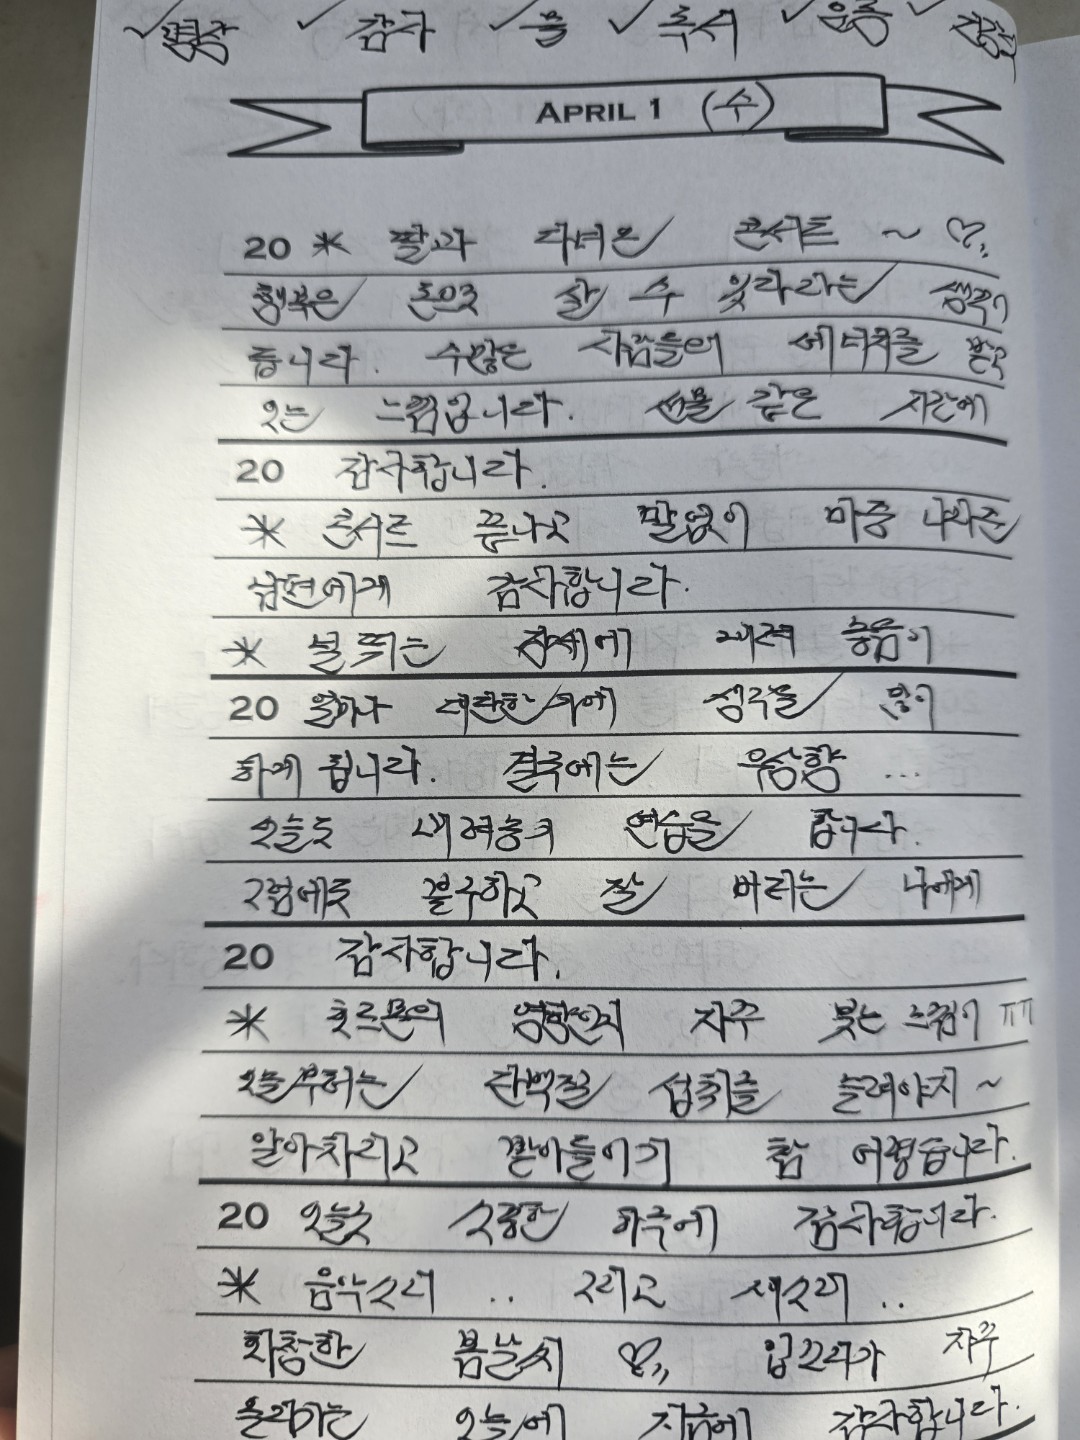 ✓명상 ✓감사 ✓물 ✓독서 ✓운동 ✓
APRIL 1 (수)
20 * 딸과 다녀온 콘서트 ~ ♡,,
행복은 돈으로 살 수 있다라는 생각이
듭니다. 수많은 사람들의 에너지를 받고
오는 느낌입니다. 선물 같은 시간에
20 감사합니다.
* 콘서트 끝나고 말없이 마중 나와준
남편에게 감사합니다.
* 널뛰는 장세에 내려 놓음이
20 얼마나 대단한 지에 생각을 많이
하게 됩니다. 결국에는 우상향 ...
오늘도 내려놓기 연습을 합니다.
그럼에도 불구하고 잘 버티는 나에게
20 감사합니다.
* 호르몬의 영향인지 자주 붓는 느낌이 ㅠㅠ
오늘부터는 단백질 섭취를 늘려야지 ~
알아차리고 받아들이기 참 어렵습니다.
20 오늘도 소중한 하루에 감사합니다.
* 음악소리 .. 그리고 새소리 ..
화창한 봄날씨 ♡,, 입꼬리가 자주
올라가는 오늘에 지금에 감사합니다.